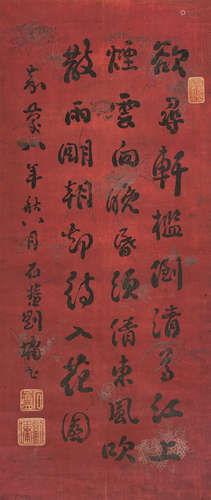 欲尋軒檻倒清尊江上
煙雲向晚昏須倩東風吹
散雨明朝却待入花園
嘉慶八年秋八月石菴劉墉